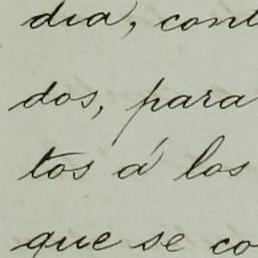 dia, cont
dos, para
tos á los
que se co